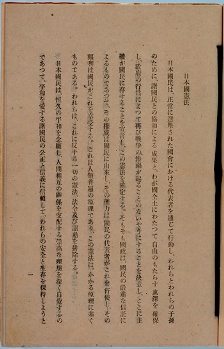 日本國憲法
日本國民は、正当に選挙された國会における代表者を通じて行動し、われらとわれらの子孫
のために、諸國民との協和による成果と、わが國全土にわたつて自由のもたらす恵澤を確保
し、政府の行為によつて再び戰爭の惨禍が起ることのないやうにすることを決意し、ここに主
権が國民に存することを宣言し、この憲法を確定する。そもそも國政は、國民の嚴粛な信託に
よるものであつて、その権威は國民に由來し、その権力は國民の代表者がこれを行使し、その
福利は國民がこれを享受する。これは人類普遍の原理であり、この憲法は、かかる原理に基く
ものである。われらは、これに反する一切の憲法、法令及び詔勅を排除する。
日本國民は、恒久の平和を念願し、人間相互の関係を支配する崇高な理想を深く自覚するの
であつて、平和を愛する諸國民の公正と信義に信頼して、われらの安全と生存を保持しようと
一